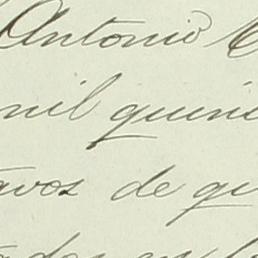 Antonio
mil quini
avos de qu